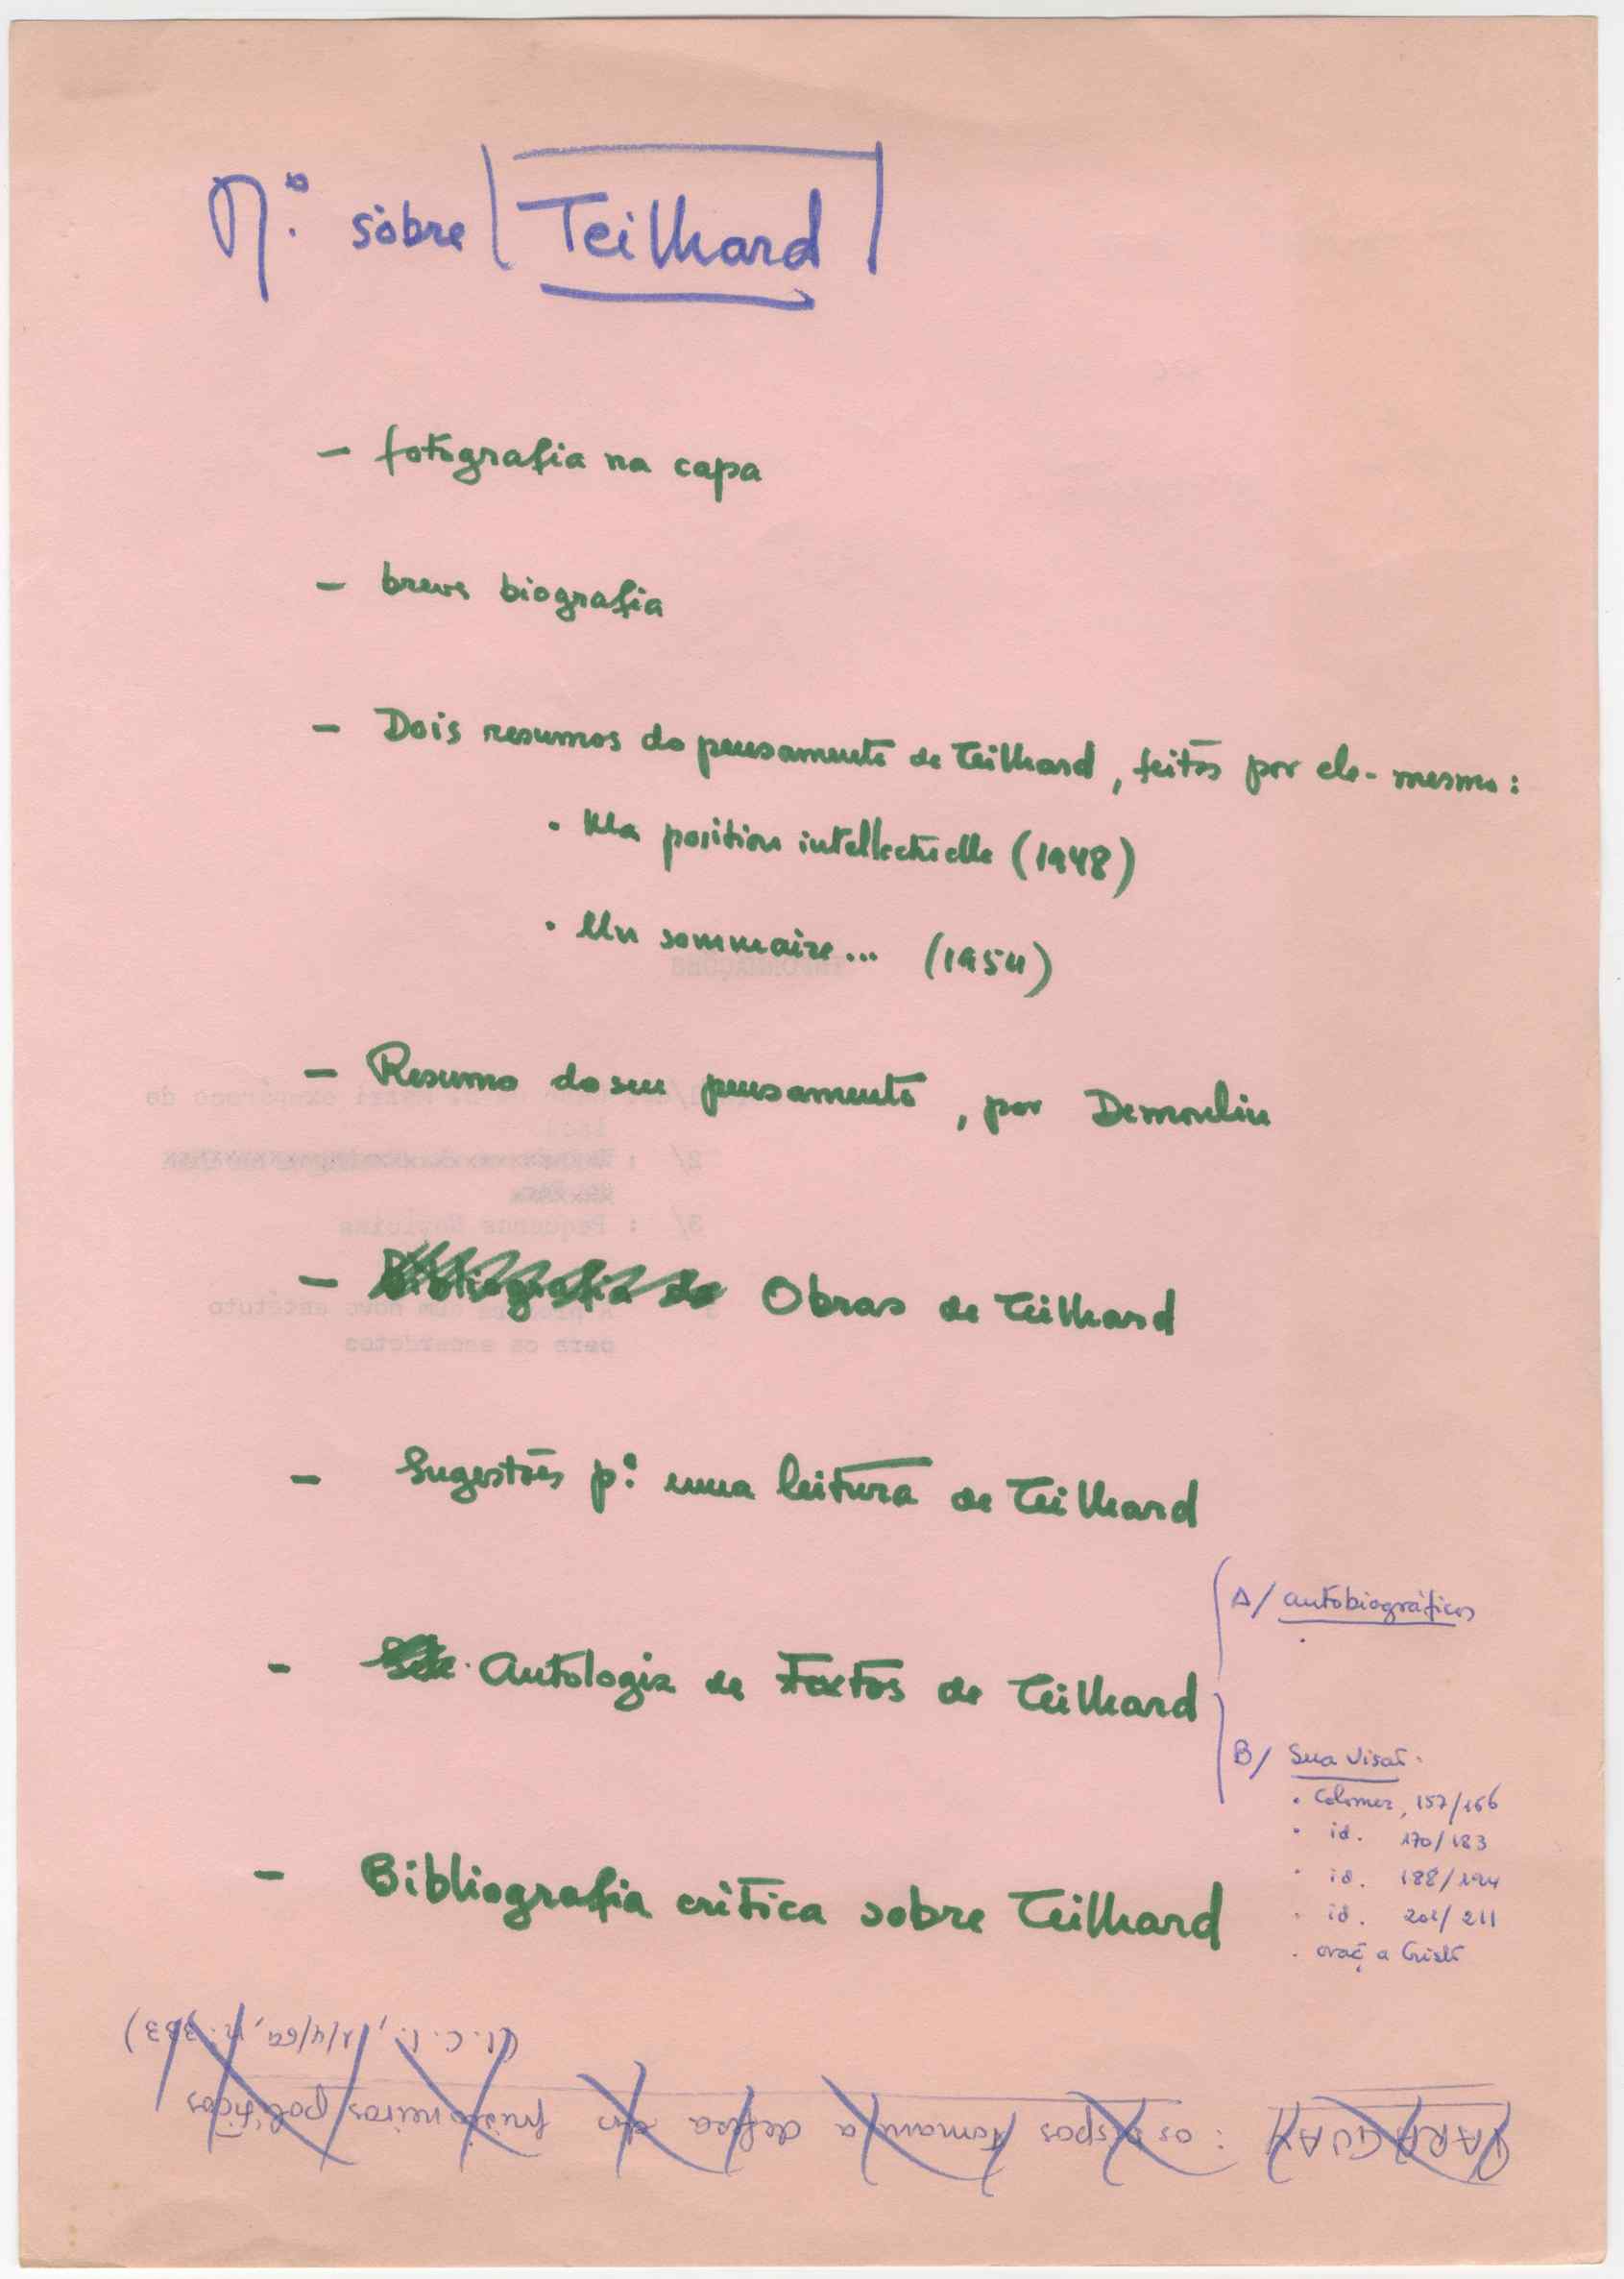 Nº sôbre Teilhard
- fotografia na capa
- breve biografia
- Dois resumos do pensamento de Teilhard, feitos por ele-mesmo:
. Ma position intellectuelle (1948)
. Un sommaire... (1954)
- Resumo do seu pensamento, por Demoulin
- Bibliografia de Obras de Teilhard
- Sugestões pª uma leitura de Teilhard
- Antologia de textos de Teilhard
A/ autobiográficos
B/ Sua visão
. Colomer, 157/166
. id. 170/183
. id. 188/194
. id. 201/211
. oraç. a Cristo
- Bibliografia crítica sobre Teilhard
PARAGUAY : os bispos tomam a defesa dos prisioneiros políticos
(I.C.I., 1/4/69, n. 333)
INFORMAÇÕES
3/ : Pequenas Notícias
novo estatuto
para os sacerdotes